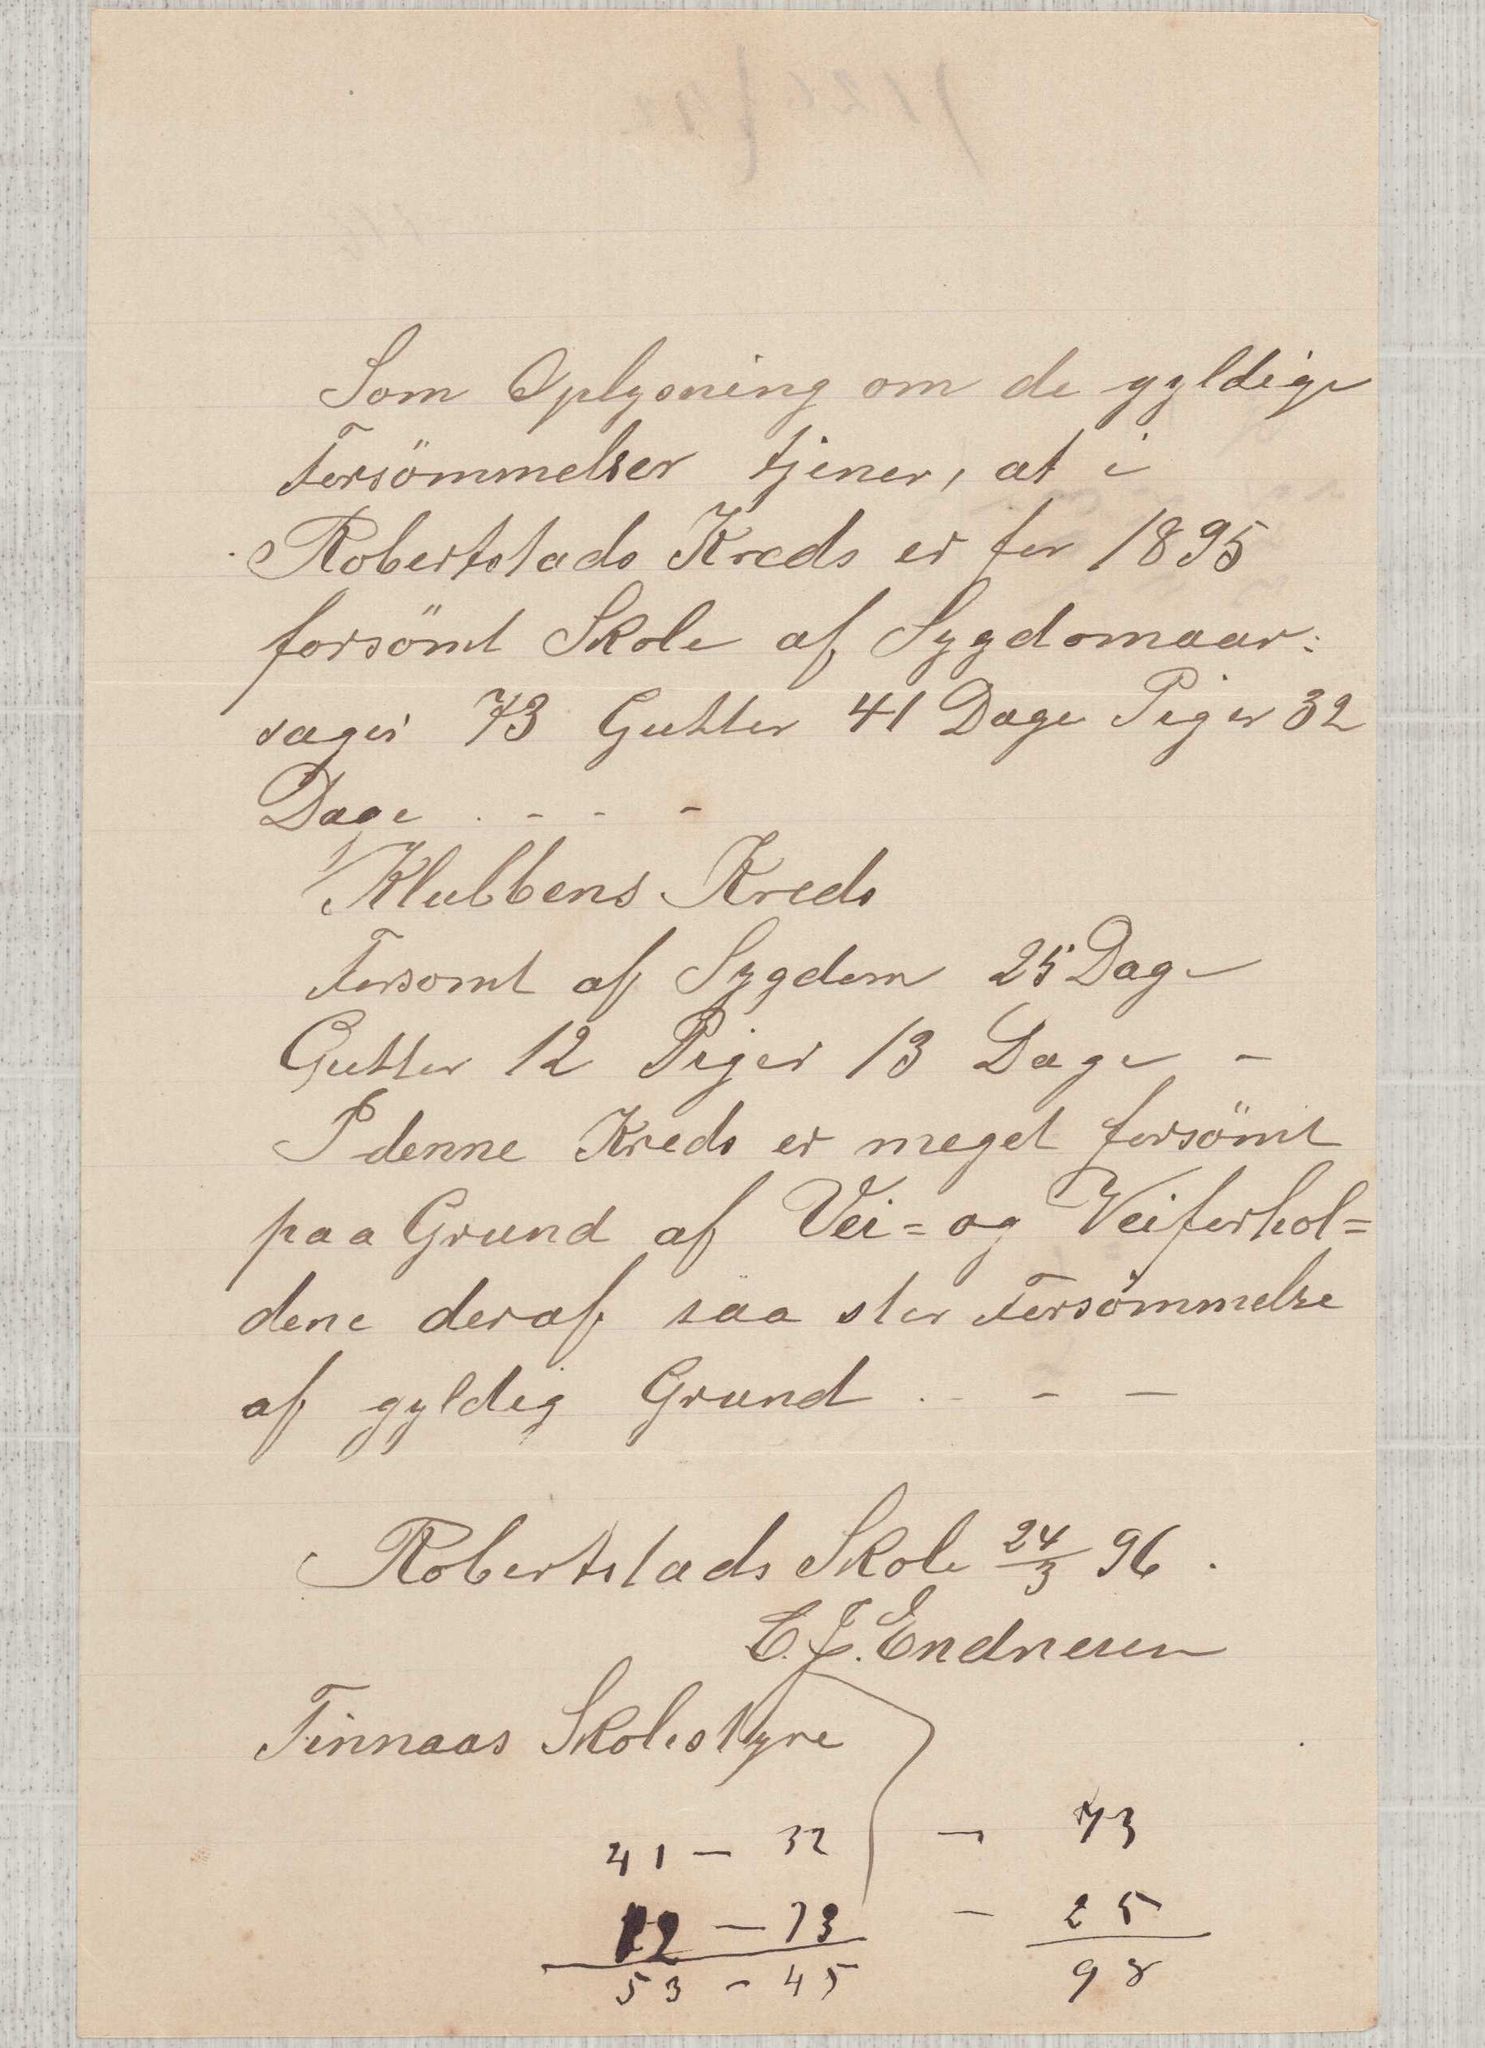 Som Oplysning om de gyldige
Forsömmelser tjener, at i
Robertstads Kreds er for 1895
forsömt Skole af Sygdomaar:
sager 73 Gutter 41 Dage Piger 32
Dage . - - -
Klubbens Kreds
Forsomt af Sygdom 25 Dage
Gutter 12 Piger 13 Dage -
I denne Kreds er meget forsömt
paa Grund af Vei= og Veiforhol=
dene deraf saa stor Forsömmelse
af gyldig Grund . - -
Robertstads Skole 24/3 96.
C. J. Endresen
Finnaas Skolestyre
41 - 32 - 73
12 - 13 - 25
53 - 45 98